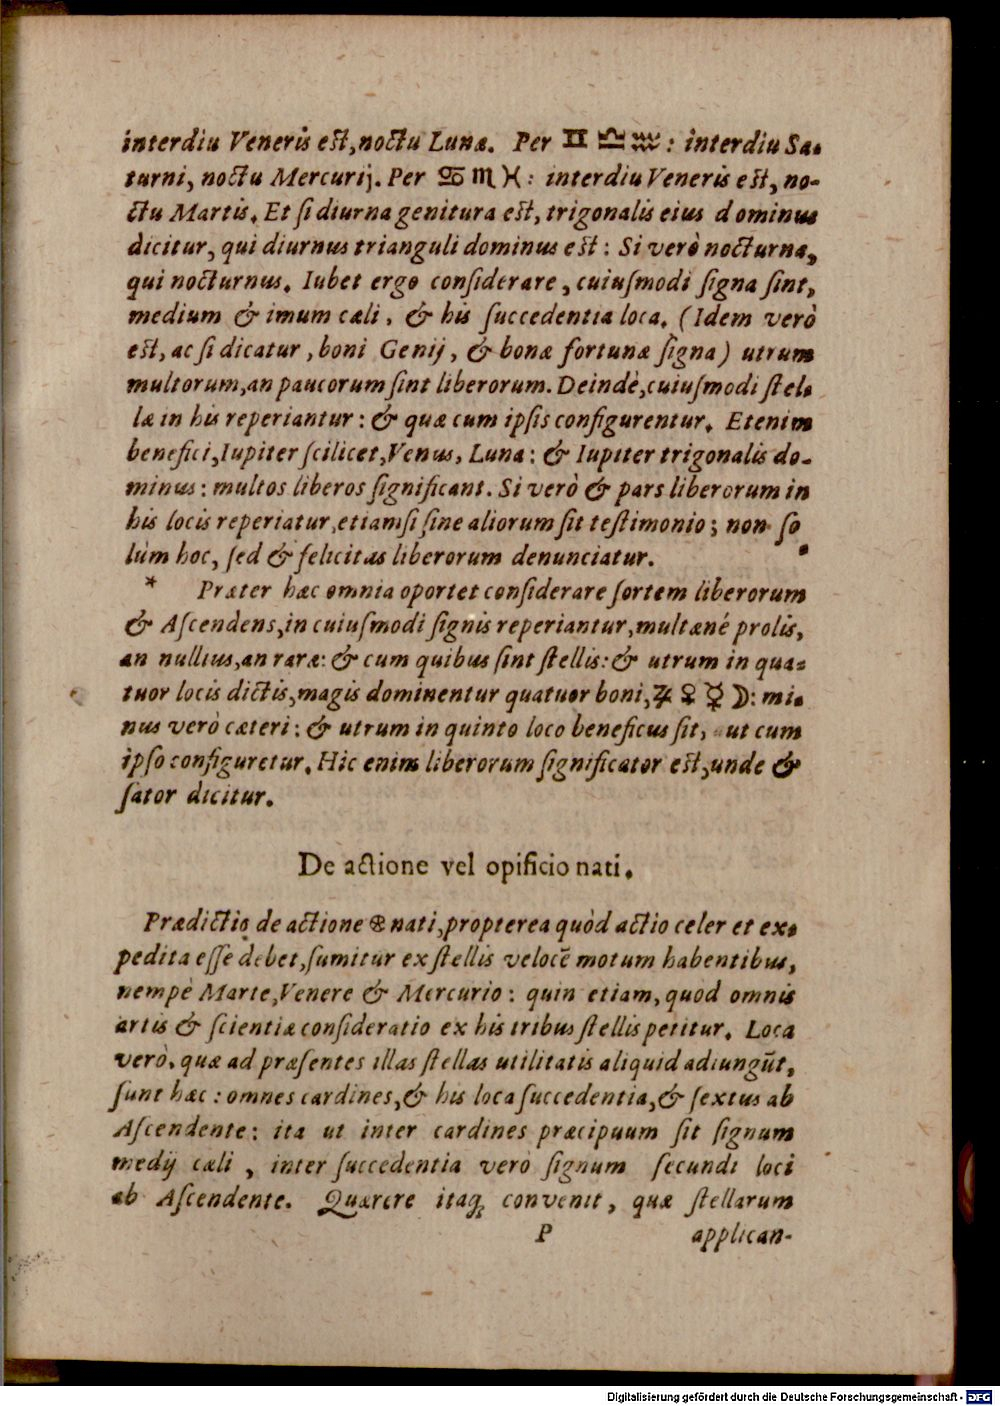 interdiu Veneris est, noctu Lunæ. Per ♊ ♎ ♒: interdiu Sa-
turni, noctu Mercurij. Per ♋ ♏ ♓: interdiu Veneris est, no-
ctu Martis. Et ſi diurna genitura est, trigonalis eius dominus
dicitur, qui diurnus trianguli dominus est: Si verò nocturna,
qui nocturnus. Iubet ergo conſiderare, cuiuſmodi ſigna ſint,
medium & imum cæli, & his ſuccedentia loca. (Idem verò
est, ac ſi dicatur, boni Genij, & bonæ fortunæ ſigna) utrum
multorum, an paucorum ſint liberorum. Deindè, cuiuſmodi ſtel-
læ in his reperiantur: & quæ cum ipſis configurentur. Etenim
benefici, Iupiter ſcilicet, Venus, Luna: & Iupiter trigonalis do-
minus: multos liberos ſignificant. Si verò & pars liberorum in
his locis reperiatur, etiamſi ſine aliorum ſit teſtimonio; non ſo
lùm hoc, ſed & felicitas liberorum denunciatur.
* Præter hæc omnia oportet conſiderare ſortem liberorum
& Aſcendens, in cuiuſmodi ſignis reperiantur, multæné prolis,
an nullius, an raræ: & cum quibus ſint ſtellis: & utrum in qua-
tuor locis dictis, magis dominentur quatuor boni, ♃ ♀ ☿ ☽: mi-
nus verò cæteri: & utrum in quinto loco beneficus ſit, aut cum
ipſo configuretur. Hic enim liberorum ſignificator est, unde &
ſator dicitur.
De actione vel opificio nati.
Prædictio de actione ⊛ nati, propterea quòd actio celer et ex-
pedita eſſe debet, ſumitur ex ſtellis velocē motum habentibus,
nempè Marte, Venere & Mercurio: quin etiam, quod omnis
artis & ſcientiæ conſideratio ex his tribus ſtellis petitur. Loca
verò, quæ ad præſentes illas ſtellas utilitatis aliquid adiungūt,
ſunt hæc: omnes cardines, & his loca ſuccedentia, & ſextus ab
Aſcendente: ita ut inter cardines præcipuum ſit ſignum
medij cæli, inter ſuccedentia verò ſignum ſecundi loci
ab Aſcendente. Quærere itaq; convenit, quæ ſtellarum
P applican-
Digitalisierung gefördert durch die Deutsche Forschungsgemeinschaft - DFG